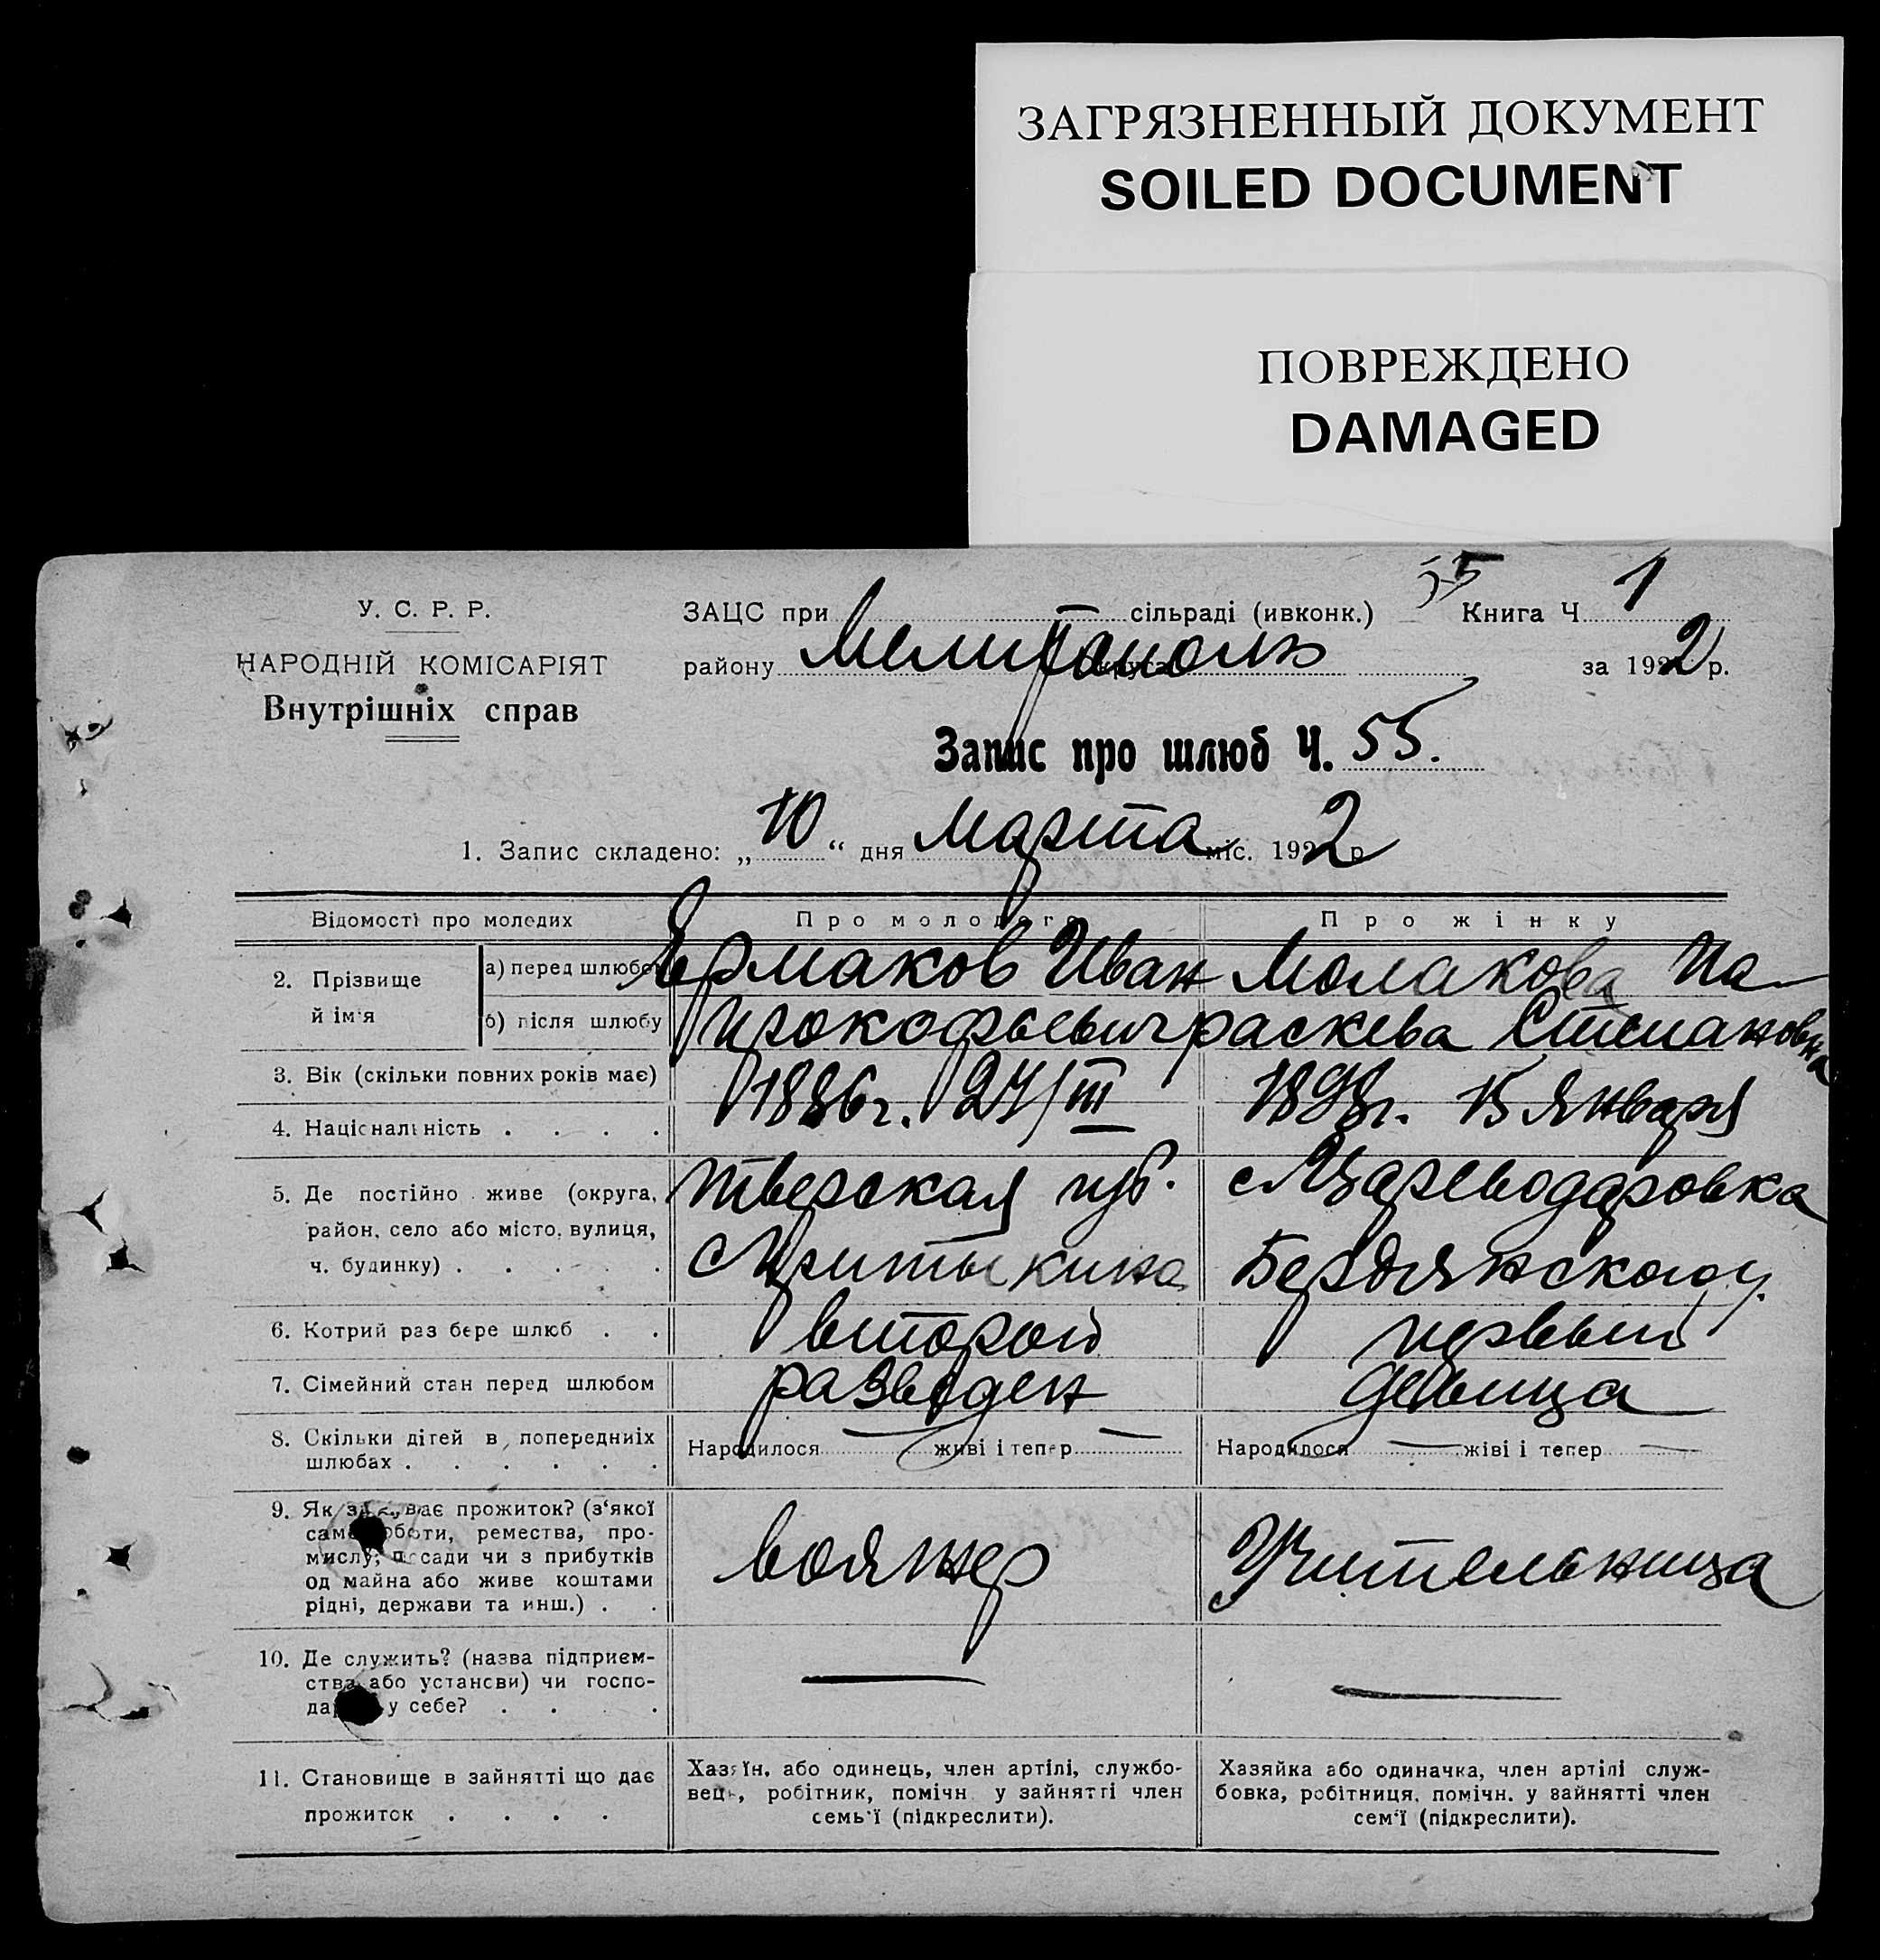 ЗАГРЯЗНЕННЫЙ ДОКУМЕНТ
SOILED DOCUMENT
ПОВРЕЖДЕНО
DAMAGED
У. С. Р. Р.
НАРОДНІЙ КОМІСАРІЯТ
Внутрішніх справ
55
ЗАЦС при сільраді (ивконк.) Книга Ч. 1
району Мелитополь округа за 1922 р.
Запис про шлюб Ч. 55.
1. Запис складено: „10“ дня Марта міс. 1922 р.
Відомості про молодих
Про молодого
Про жінку
2. Прізвище й ім'я
а) перед шлюбом
б) після шлюбу
Ермаков Иван
Прокофьевич
Молакова Па-
раскева Степановна
3. Вік (скільки повних років має)
4. Національність . . . .
1886г. 27/III
1898г. 15 Января
5. Де постійно живе (округа,
район, село або місто, вулиця,
ч. будинку) . . . . .
Тверская губ.
с Притыкина
с Цареводаровка
Бердянского у.
6. Котрий раз бере шлюб . .
второй
первый
7. Сімейний стан перед шлюбом
разведен
девица
8. Скільки дітей в попередниіх
шлюбах . . . . . .
Народилося — живі і тепер —
Народилося — жіві і тепер —
9. Як ває прожиток? (з‘якої
само роботи, ремества, про-
мислу, посади чи з прибутків
од майна або живе коштами
рідні, держави та инш.) . .
вояжер
Учительница
10. Де служить? (назва підприєм-
ства або установи) чи госпо-
дар у себе? . . . .
—
—
11. Становище в зайнятті що дає
прожиток . . . .
Хазяїн, або одинець, член артілі, службо-
вець, робітник, помічн. у зайнятті член
семь‘ї (підкреслити).
Хазяйка або одиначка, член артілі служ-
бовка, робітниця, помічн. у зайнятті член
сем‘ї (підкреслити).